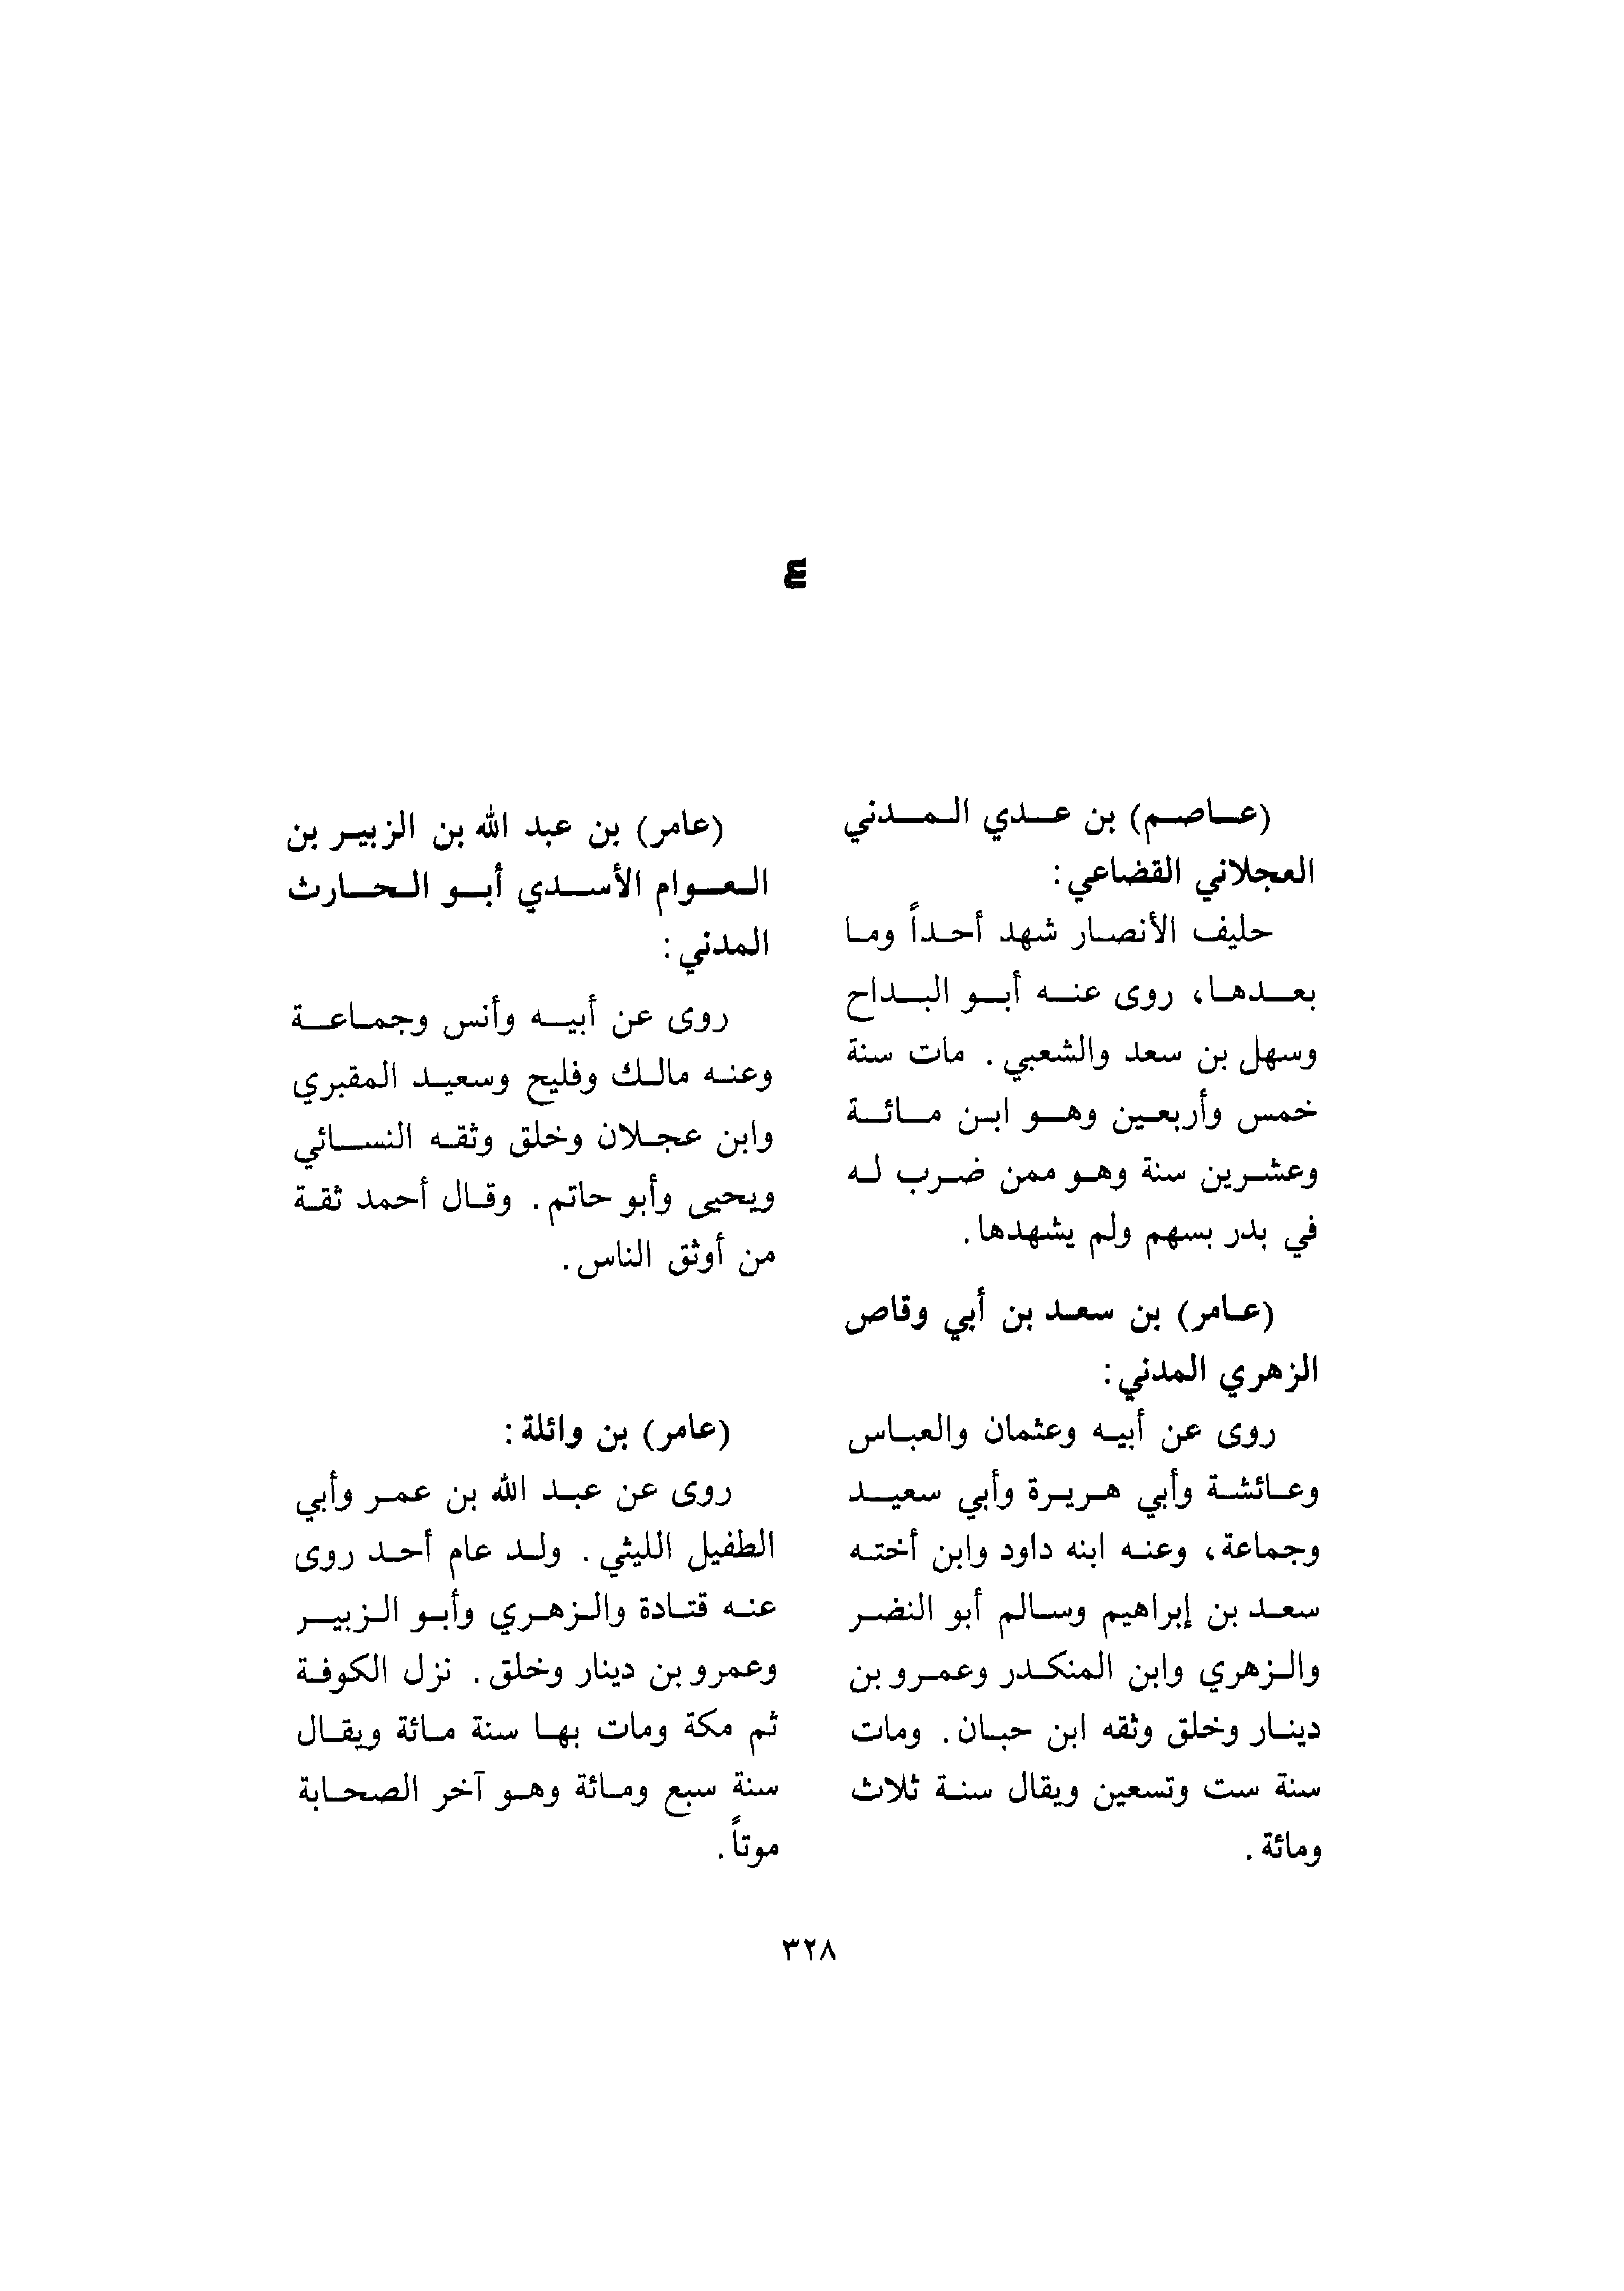 ع
(عاصم) بن عدي المدني
العجلاني القضاعي:
حليف الأنصار شهد أحداً وما
بعدها، روى عنه أبو البداح
وسهل بن سعد والشعبي. مات سنة
خمس وأربعين وهو ابن مائة
وعشرين سنة وهو ممن ضرب له
في بدر بسهم ولم يشهدها.
(عامر) بن سعد بن أبي وقاص
الزهري المدني:
روى عن أبيه وعثمان والعباس
وعائشة وأبي هريرة وأبي سعيد
وجماعة، وعنه ابنه داود وابن أخته
سعد بن إبراهيم وسالم أبو النضر
والزهري وابن المنكدر وعمرو بن
دينار وخلق وثقه ابن حبان. ومات
سنة ست وتسعين ويقال سنة ثلاث
ومائة.
(عامر) بن عبد الله بن الزبير بن
العوام الأسدي أبو الحارث
المدني:
روى عن أبيه وأنس وجماعة
وعنه مالك وفليح وسعيد المقبري
وابن عجلان وخلق وثقه النسائي
ويحيى وأبو حاتم. وقال أحمد ثقة
من أوثق الناس.
(عامر) بن وائلة:
روى عن عبد الله بن عمر وأبي
الطفيل الليثي. ولد عام أحد روى
عنه قتادة والزهري وأبو الزبير
وعمرو بن دينار وخلق. نزل الكوفة
ثم مكة ومات بها سنة مائة ويقال
سنة سبع ومائة وهو آخر الصحابة
موتاً.
٣٢٨